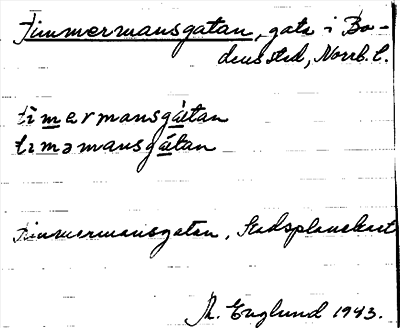 Timmermansgatan, gata i Bo-
dens stad, Norrb. l.
timermansgátan
timəmansgátan
Timmermansgatan, Stadsplanekart
Th. Englund 1943.